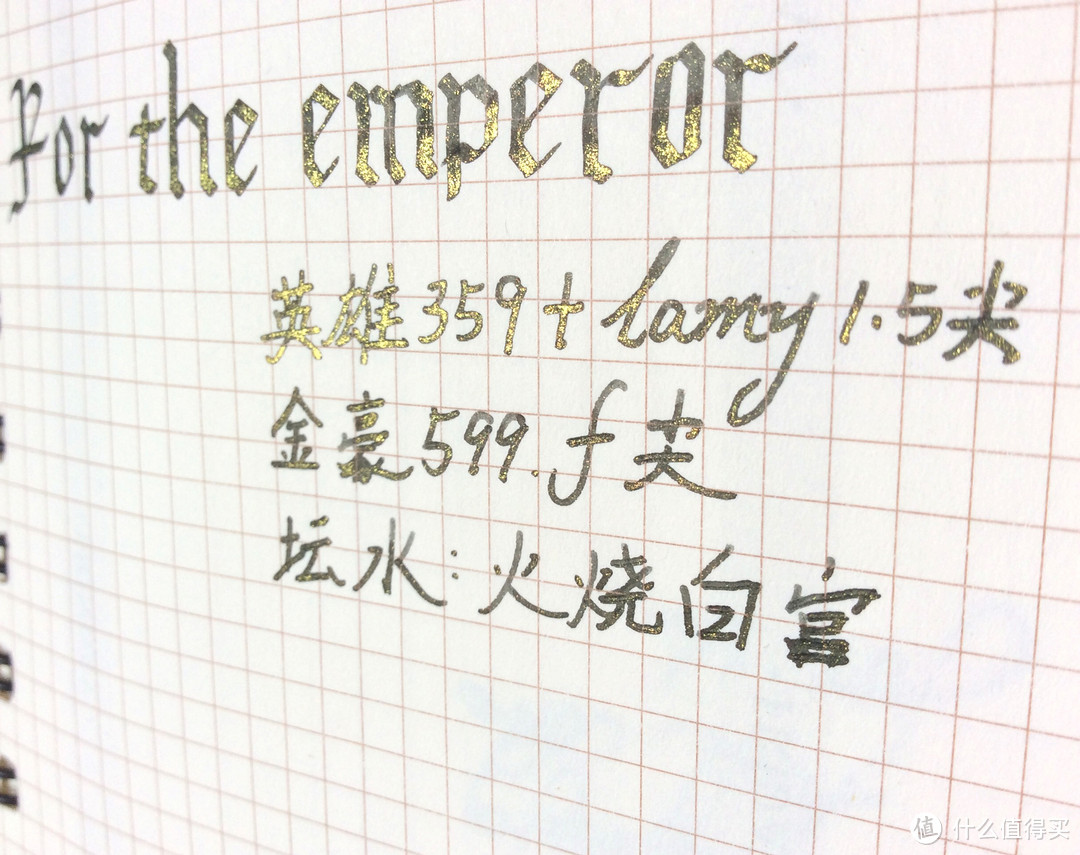 For the emperor
英雄359+lamy 1.5尖
金豪599.f尖
坛水:火烧白宫
值 什么值得买